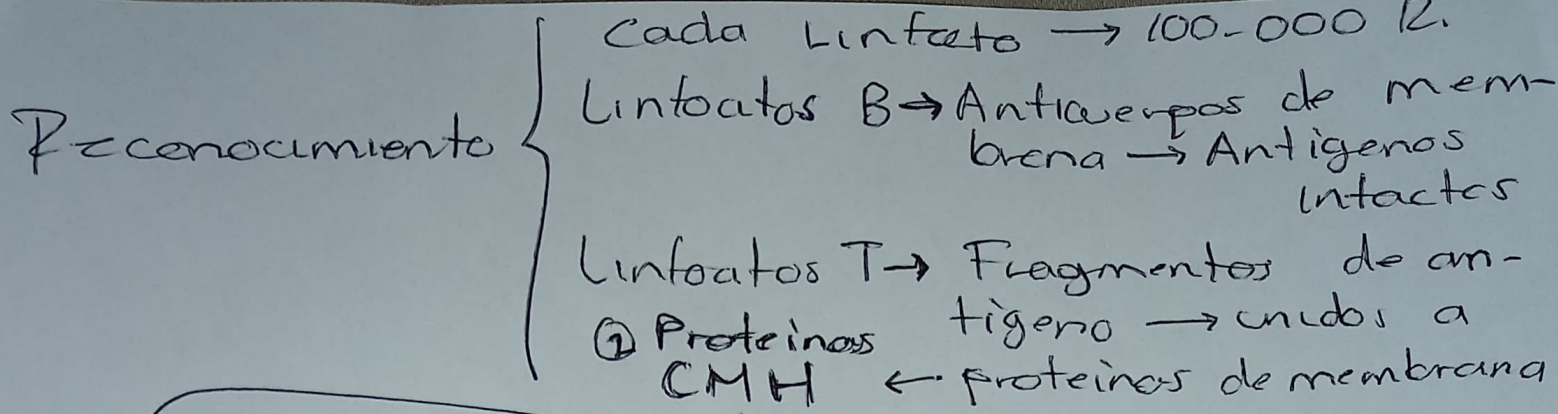 Cada Linfocito → 100.000 R.
Reconocimiento
Linfocitos B → Anticuerpos de mem-
brana → Antigenos
intactos
Linfocitos T → Fragmentos de an-
tigeno → unidos a
② Proteinas
CMH ← proteinas de membrana